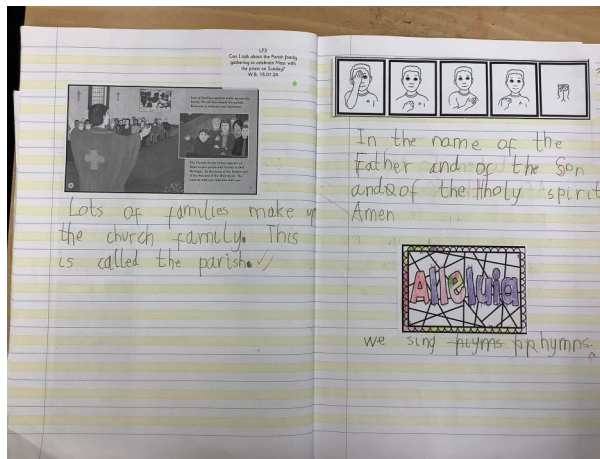 LF3
Can I talk about the Parish family
gathering to celebrate Mass with
the priest on Sunday?
W.B. 15.01.24
Lots of families make up
the church family. This
is called the parish.
In the name of the
Father and of the Son
and of the Hholy spirit
Amen
Alleluia
we sing hymns.